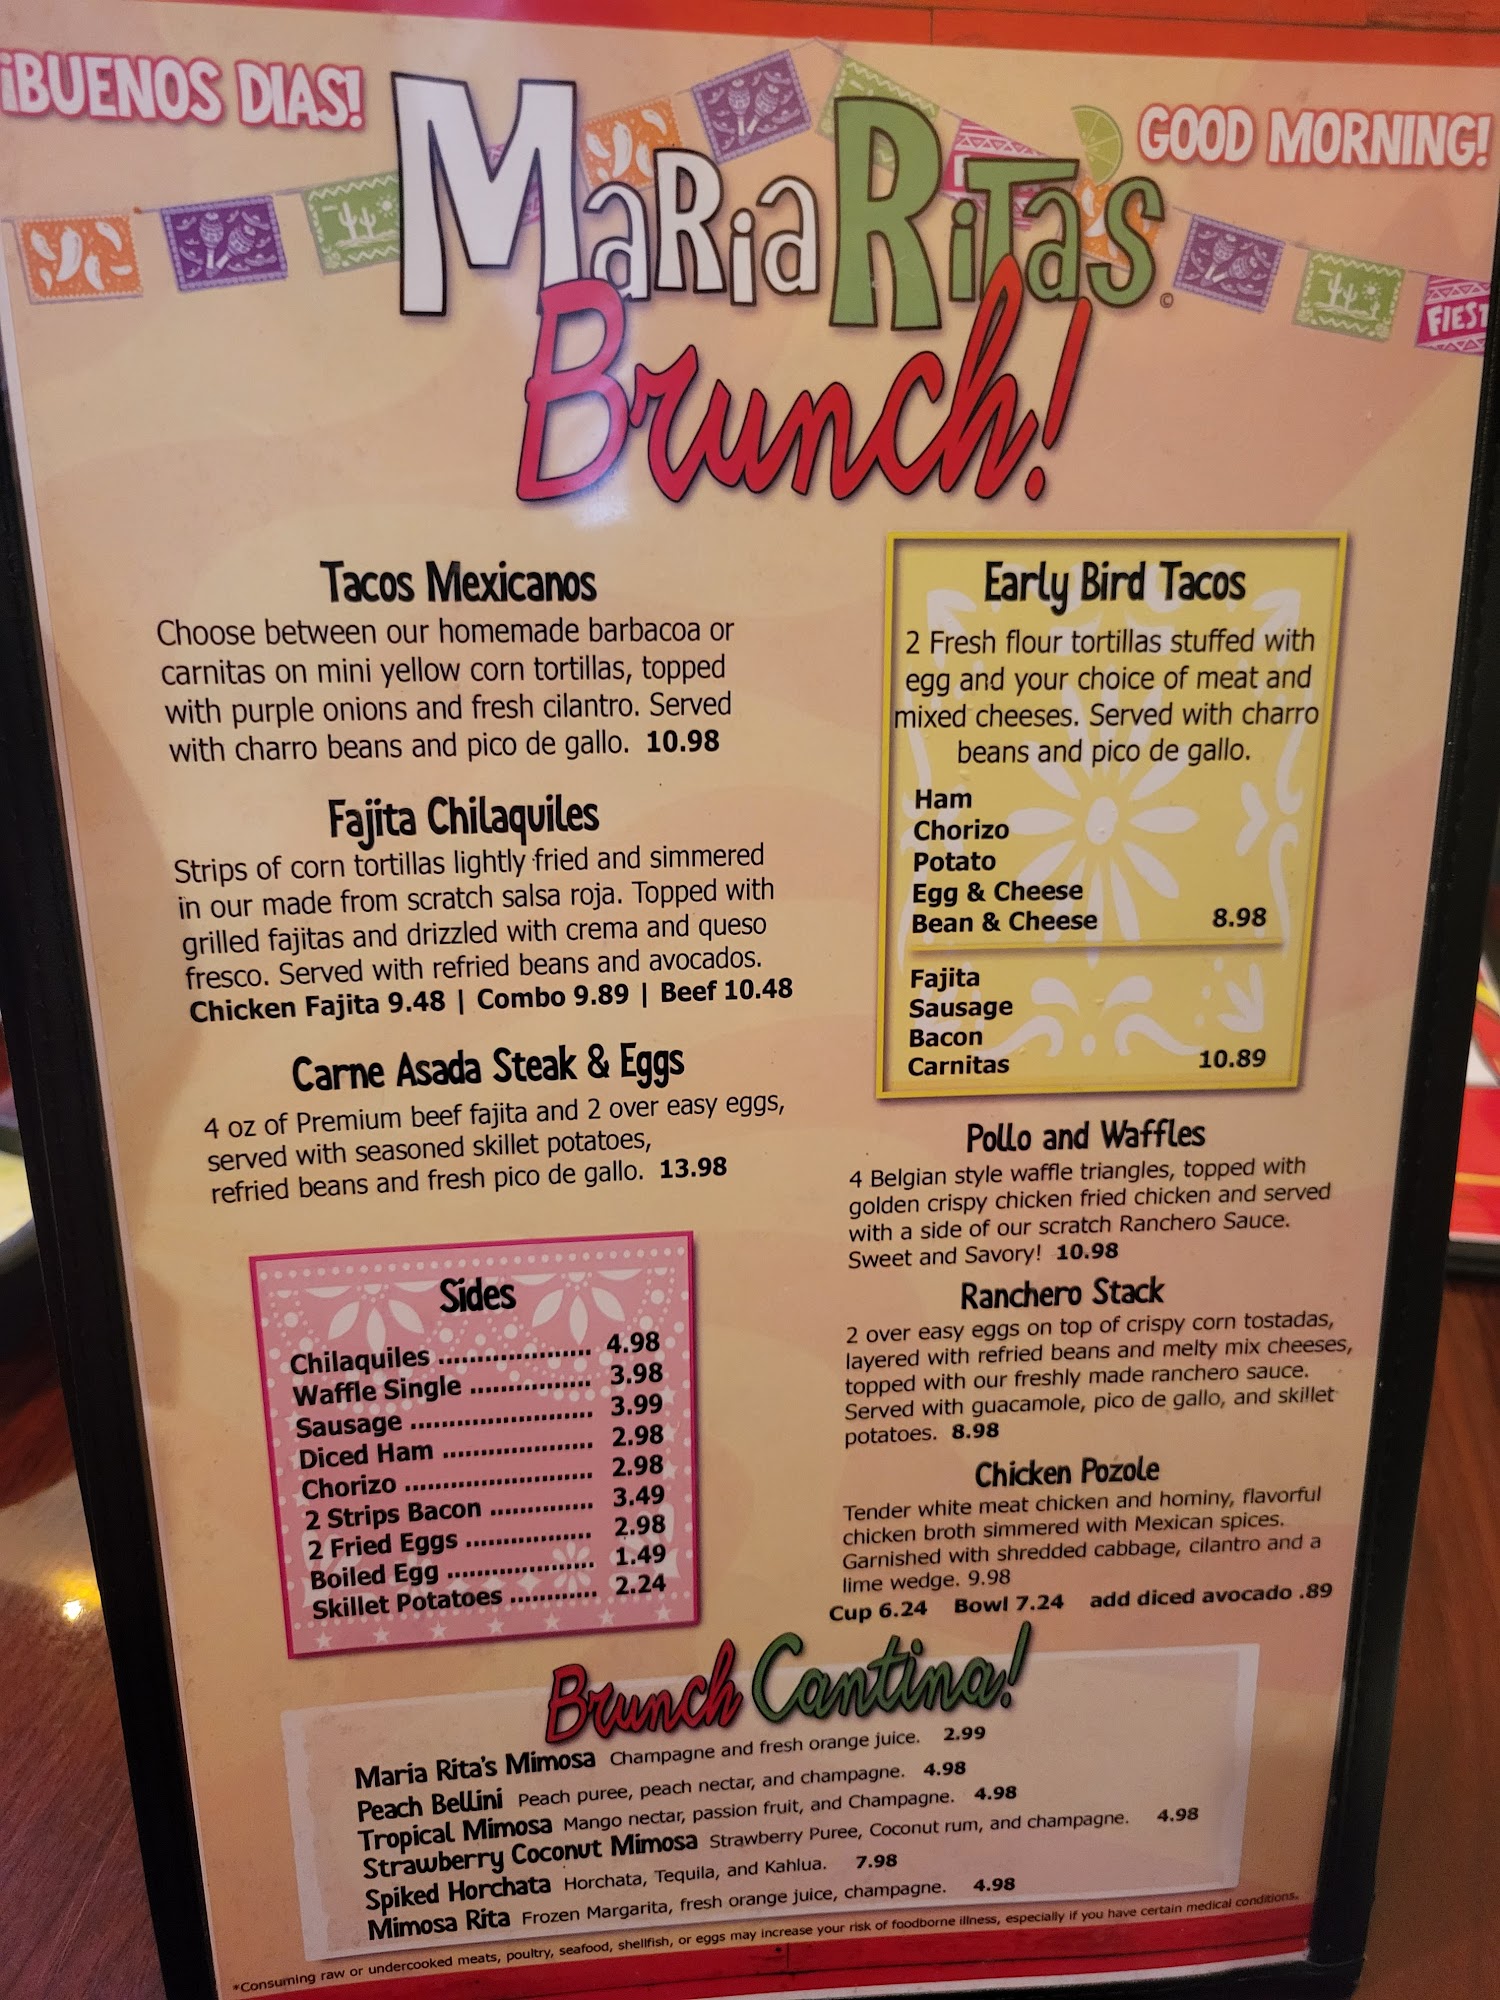 ¡BUENOS DIAS!
GOOD MORNING!
MariaRitas ©
Brunch!
FIEST
Tacos Mexicanos
Choose between our homemade barbacoa or
carnitas on mini yellow corn tortillas, topped
with purple onions and fresh cilantro. Served
with charro beans and pico de gallo. 10.98
Fajita Chilaquiles
Strips of corn tortillas lightly fried and simmered
in our made from scratch salsa roja. Topped with
grilled fajitas and drizzled with crema and queso
fresco. Served with refried beans and avocados.
Chicken Fajita 9.48 | Combo 9.89 | Beef 10.48
Carne Asada Steak & Eggs
4 oz of Premium beef fajita and 2 over easy eggs,
served with seasoned skillet potatoes,
refried beans and fresh pico de gallo. 13.98
Sides
Chilaquiles ..................... 4.98
Waffle Single ................. 3.98
Sausage ......................... 3.99
Diced Ham ..................... 2.98
Chorizo .......................... 2.98
2 Strips Bacon .............. 3.49
2 Fried Eggs ................. 2.98
Boiled Egg .................... 1.49
Skillet Potatoes ............ 2.24
Early Bird Tacos
2 Fresh flour tortillas stuffed with
egg and your choice of meat and
mixed cheeses. Served with charro
beans and pico de gallo.
Ham
Chorizo
Potato
Egg & Cheese
Bean & Cheese 8.98
Fajita
Sausage
Bacon
Carnitas 10.89
Pollo and Waffles
4 Belgian style waffle triangles, topped with
golden crispy chicken fried chicken and served
with a side of our scratch Ranchero Sauce.
Sweet and Savory! 10.98
Ranchero Stack
2 over easy eggs on top of crispy corn tostadas,
layered with refried beans and melty mix cheeses,
topped with our freshly made ranchero sauce.
Served with guacamole, pico de gallo, and skillet
potatoes. 8.98
Chicken Pozole
Tender white meat chicken and hominy, flavorful
chicken broth simmered with Mexican spices.
Garnished with shredded cabbage, cilantro and a
lime wedge. 9.98
Cup 6.24 Bowl 7.24 add diced avocado .89
Brunch Cantina!
Maria Rita's Mimosa Champagne and fresh orange juice. 2.99
Peach Bellini Peach puree, peach nectar, and champagne. 4.98
Tropical Mimosa Mango nectar, passion fruit, and Champagne. 4.98
Strawberry Coconut Mimosa Strawberry Puree, Coconut rum, and champagne. 4.98
Spiked Horchata Horchata, Tequila, and Kahlua. 7.98
Mimosa Rita Frozen Margarita, fresh orange juice, champagne. 4.98
*Consuming raw or undercooked meats, poultry, seafood, shellfish, or eggs may increase your risk of foodborne illness, especially if you have certain medical conditions.